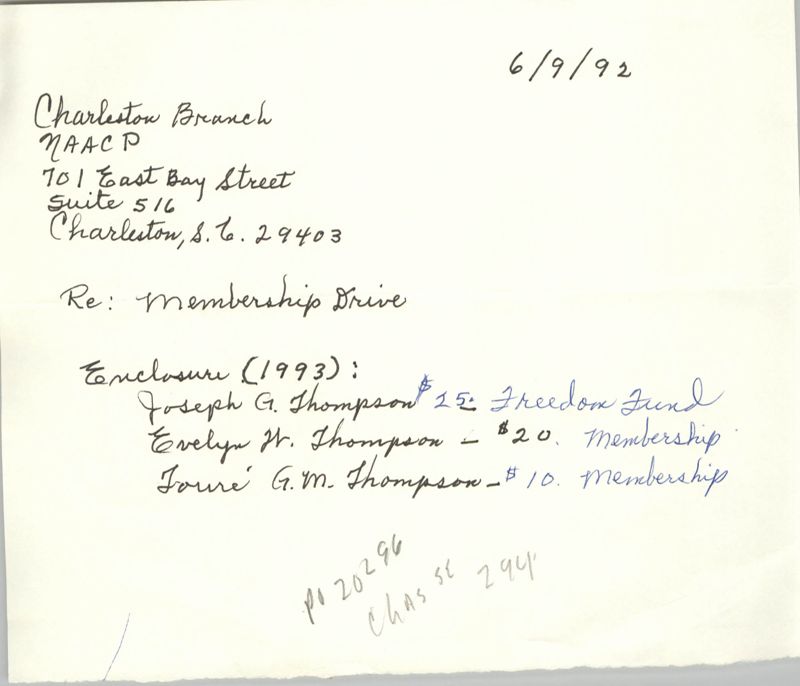 6/9/92
Charleston Branch
NAACP
701 East Bay Street
Suite 516
Charleston, S.C. 29403
Re: Membership Drive
Enclosure (1993):
Joseph G. Thompson $25- Freedom Fund
Evelyn W. Thompson - $20. Membership
Touré G.M. Thompson - $10. Membership
PO 20296
Chas SC 294